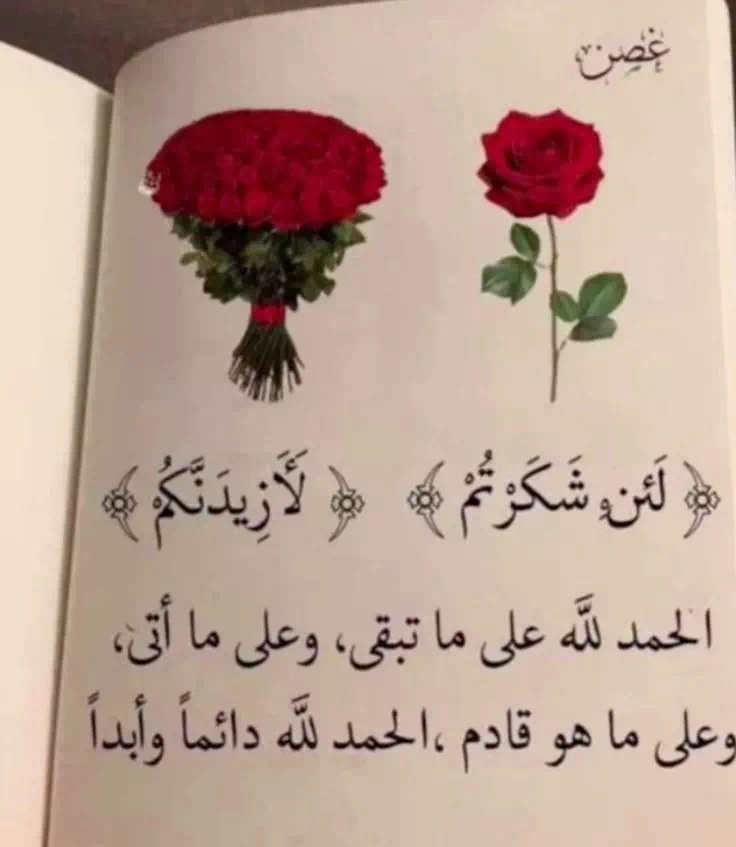 غصن
﴿ لَئِن شَكَرْتُمْ ﴾ ﴿ لَأَزِيدَنَّكُمْ ﴾
الحمد للَّه على ما تبقى، وعلى ما أتى،
وعلى ما هو قادم ،الحمد للَّه دائماً وأبداً